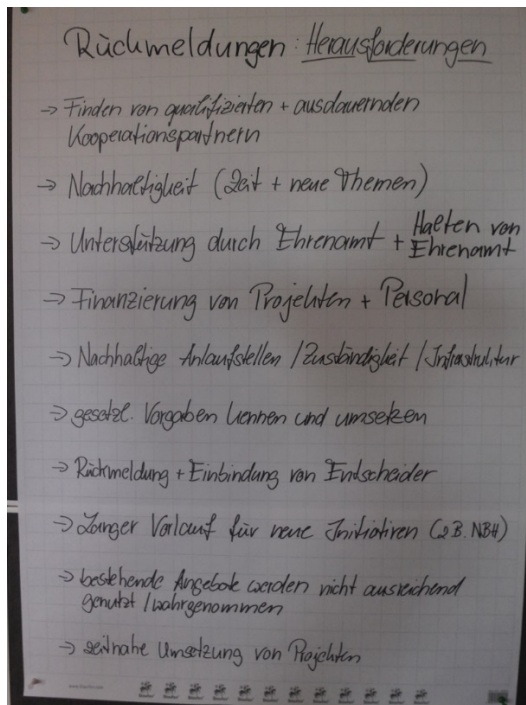 Rückmeldungen: Herausforderungen
→ Finden von qualifizierten + ausdauernden
Kooperationspartnern
→ Nachhaltigkeit (Zeit + neue Themen)
→ Unterstützung durch Ehrenamt + Halten von
Ehrenamt
→ Finanzierung von Projekten + Personal
→ Nachhaltige Anlaufstellen / Zuständigkeit / Infrastruktur
→ gesetzl. Vorgaben kennen und umsetzen
→ Rückmeldung + Einbindung von Entscheider
→ Langer Vorlauf für neue Initiativen (z.B. NBH)
→ bestehende Angebote werden nicht ausreichend
genutzt / wahrgenommen
→ zeitnahe Umsetzung von Projekten